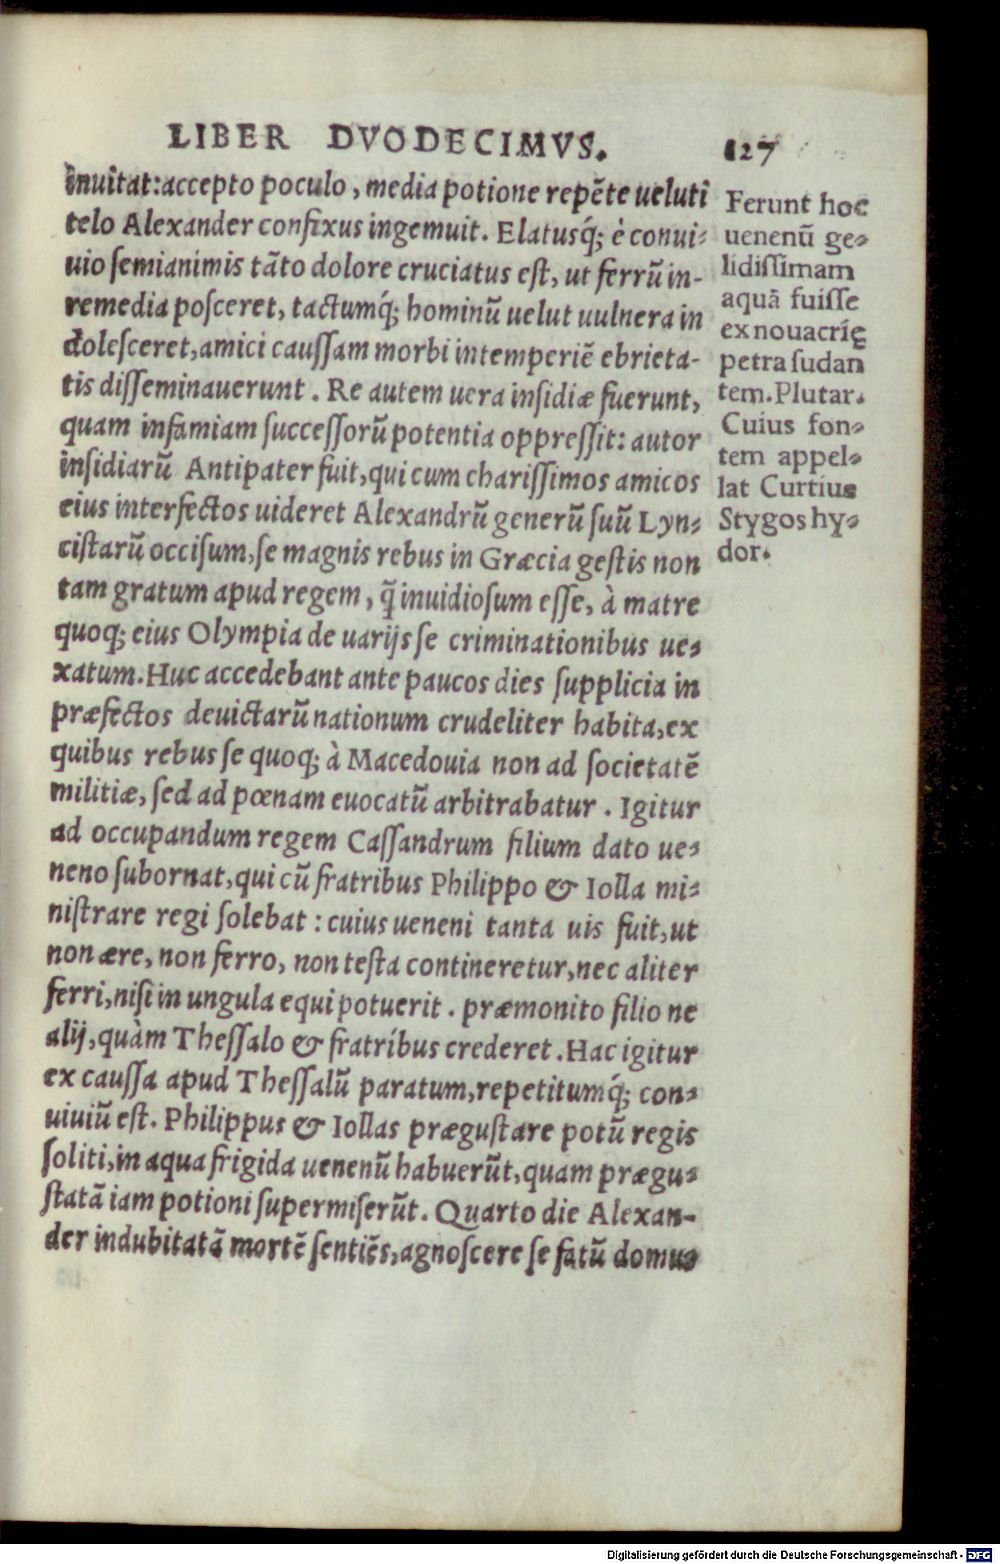 LIBER DVODECIMVS. 127
inuitat:accepto poculo, media potione repẽte ueluti
telo Alexander confixus ingemuit. Elatusq́; è conui-
uio semianimis tãto dolore cruciatus est, ut ferrũ in-
remedia posceret, tactumq́; hominũ uelut uulnera in
dolesceret,amici caussam morbi intemperiẽ ebrieta-
tis disseminauerunt. Re autem uera insidiæ fuerunt,
quam infamiam successorũ potentia oppressit: autor
insidiarũ Antipater fuit,qui cum charissimos amicos
eius interfectos uideret Alexandrũ generũ suũ Lyn-
cistarũ occisum,se magnis rebus in Græcia gestis non
tam gratum apud regem, q̃ inuidiosum esse, à matre
quoq; eius Olympia de uarijs se criminationibus ue-
xatum. Huc accedebant ante paucos dies supplicia in
præfectos deuictarũ nationum crudeliter habita,ex
quibus rebus se quoq; à Macedouia non ad societatẽ
militiæ, sed ad pœnam euocatũ arbitrabatur. Igitur
ad occupandum regem Cassandrum filium dato ue-
neno subornat,qui cũ fratribus Philippo & Iolla mi-
nistrare regi solebat: cuius ueneni tanta uis fuit,ut
non ære, non ferro, non testa contineretur,nec aliter
ferri,nisi in ungula equi potuerit. præmonito filio ne
alij,quàm Thessalo & fratribus crederet. Hac igitur
ex caussa apud Thessalũ paratum,repetitumq́; con-
uiuiũ est. Philippus & Iollas prægustare potũ regis
soliti,in aqua frigida uenenũ habuerũt,quam prægu-
statã iam potioni supermiserũt. Quarto die Alexan-
der indubitatã mortẽ sentiẽs,agnoscere se fatũ domus
Ferunt hoc
uenenũ ge-
lidissimam
aquã fuisse
ex nouacrię
petra sudan
tem. Plutar.
Cuius fon-
tem appel-
lat Curtius
Stygos hy-
dor.
Digitalisierung gefördert durch die Deutsche Forschungsgemeinschaft - DFG